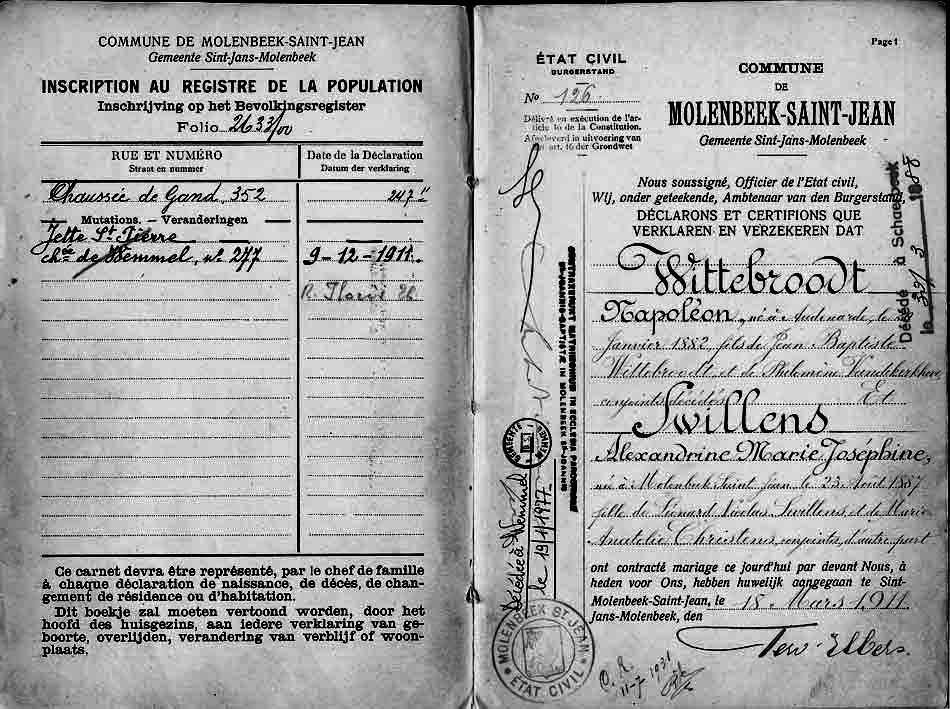 COMMUNE DE MOLENBEEK-SAINT-JEAN
Gemeente Sint-Jans-Molenbeek
INSCRIPTION AU REGISTRE DE LA POPULATION
Inschrijving op het Bevolkingsregister
Folio 2633/00
RUE ET NUMÉRO
Straat en nummer
Date de la Déclaration
Datum der verklaring
Chaussée de Gand 352
Mutations. — Veranderingen
Jette St Pierre
chée de Wemmel, no 277 9-12-1911.
Ce carnet devra être représenté, par le chef de famille
à chaque déclaration de naissance, de décès, de chan-
gement de résidence ou d'habitation.
Dit boekje zal moeten vertoond worden, door het
hoofd des huisgezins, aan iedere verklaring van ge-
boorte, overlijden, verandering van verblijf of woon-
plaats.
Page 1
ÉTAT CIVIL
BURGERSTAND
No 126
Délivré en exécution de l'ar-
ticle 16 de la Constitution.
Afgeleverd in uitvoering van
art. 16 der Grondwet
COMMUNE
DE
MOLENBEEK-SAINT-JEAN
Gemeente Sint-Jans-Molenbeek
Nous soussigné, Officier de l'Etat civil,
Wij, onder geteekende, Ambtenaar van den Burgerstand,
DÉCLARONS ET CERTIFIONS QUE
VERKLAREN EN VERZEKEREN DAT
Wittebroodt
Napoléon, né à Audenarde, le
Janvier 1882, fils de Jean Baptiste
Wittebroodt et de Philomène Vandekerkhove
conjoints décédés Et
Swillens
Alexandrine Marie Joséphine,
née à Molenbeek Saint Jean le 23 Août 1887
fille de Léonard Nicolas Swillens et de Marie
Anatolie Christens, conjoints, d'autre part
ont contracté mariage ce jourd'hui par devant Nous, à
heden voor Ons, hebben huwelijk aangegaan te Sint-
Molenbeek-Saint-Jean, le 18 Mars 1911
Jans-Molenbeek, den
Décédé à Schaerbeek
le 29/3 1958
CONTRAXERUNT MATRIMONIUM IN ECCLESIA PAROCHIALI
ST-JOANNIS-BAPTISTÆ IN MOLENBEEK ST-JOANNIS
GEMEENTE WEMMEL
Décédée à Wemmel
le 19/1/1977
MOLENBEEK ST JEAN
ETAT CIVIL
C. R.
11-7 1931